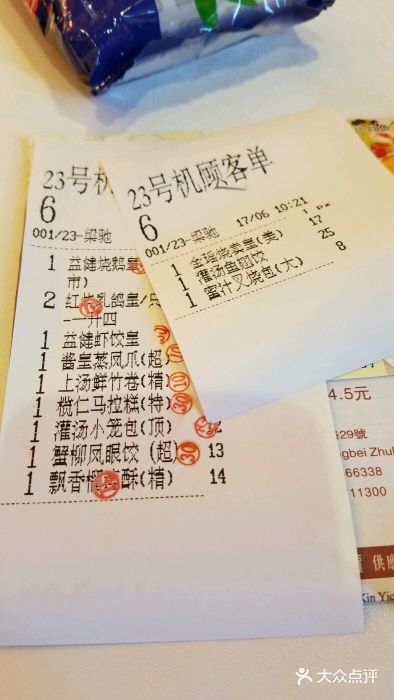 23号机
6
001/23-梁驰
1 益健烧鹅皇
市)
2 红烧乳鸽皇/只
一开四
1 益健虾饺皇
1 酱皇蒸凤爪(超)
1 上汤鲜竹卷(精)
1 榄仁马拉糕(特)
1 灌汤小笼包(顶)
1 蟹柳凤眼饺(超) 13
1 飘香榴莲酥(精) 14
23号机顾客单
6
001/23-梁驰 17/06 10:21
1 金瑶烧卖皇(美) 17
1 灌汤鱼翅饺 25
1 蜜汁叉烧包(大) 8
4.5元
529號
gbei Zhuh
66338
11300
供應
Xin Yic
大众点评